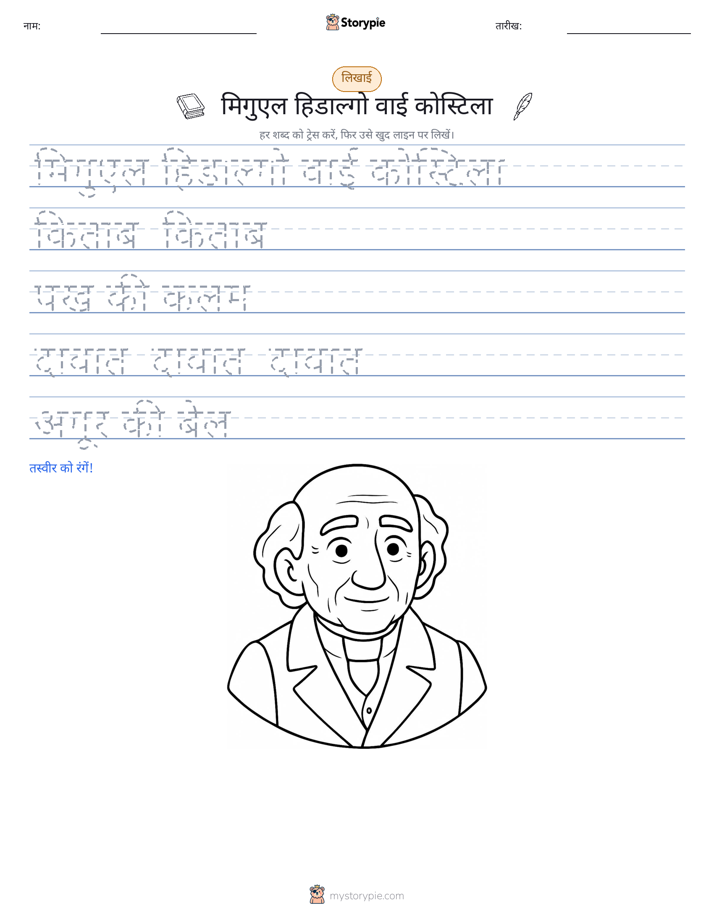 नाम:
Storypie
तारीख:
लिखाई
मिगुएल हिडाल्गो वाई कोस्टिला
हर शब्द को ट्रेस करें, फिर उसे खुद लाइन पर लिखें।
मिगुएल हिडाल्गो वाई कोस्टिला
किताब किताब
पंख की कलम
दावात दावात दावात
अंगूर की बेल
तस्वीर को रंगें!
mystorypie.com